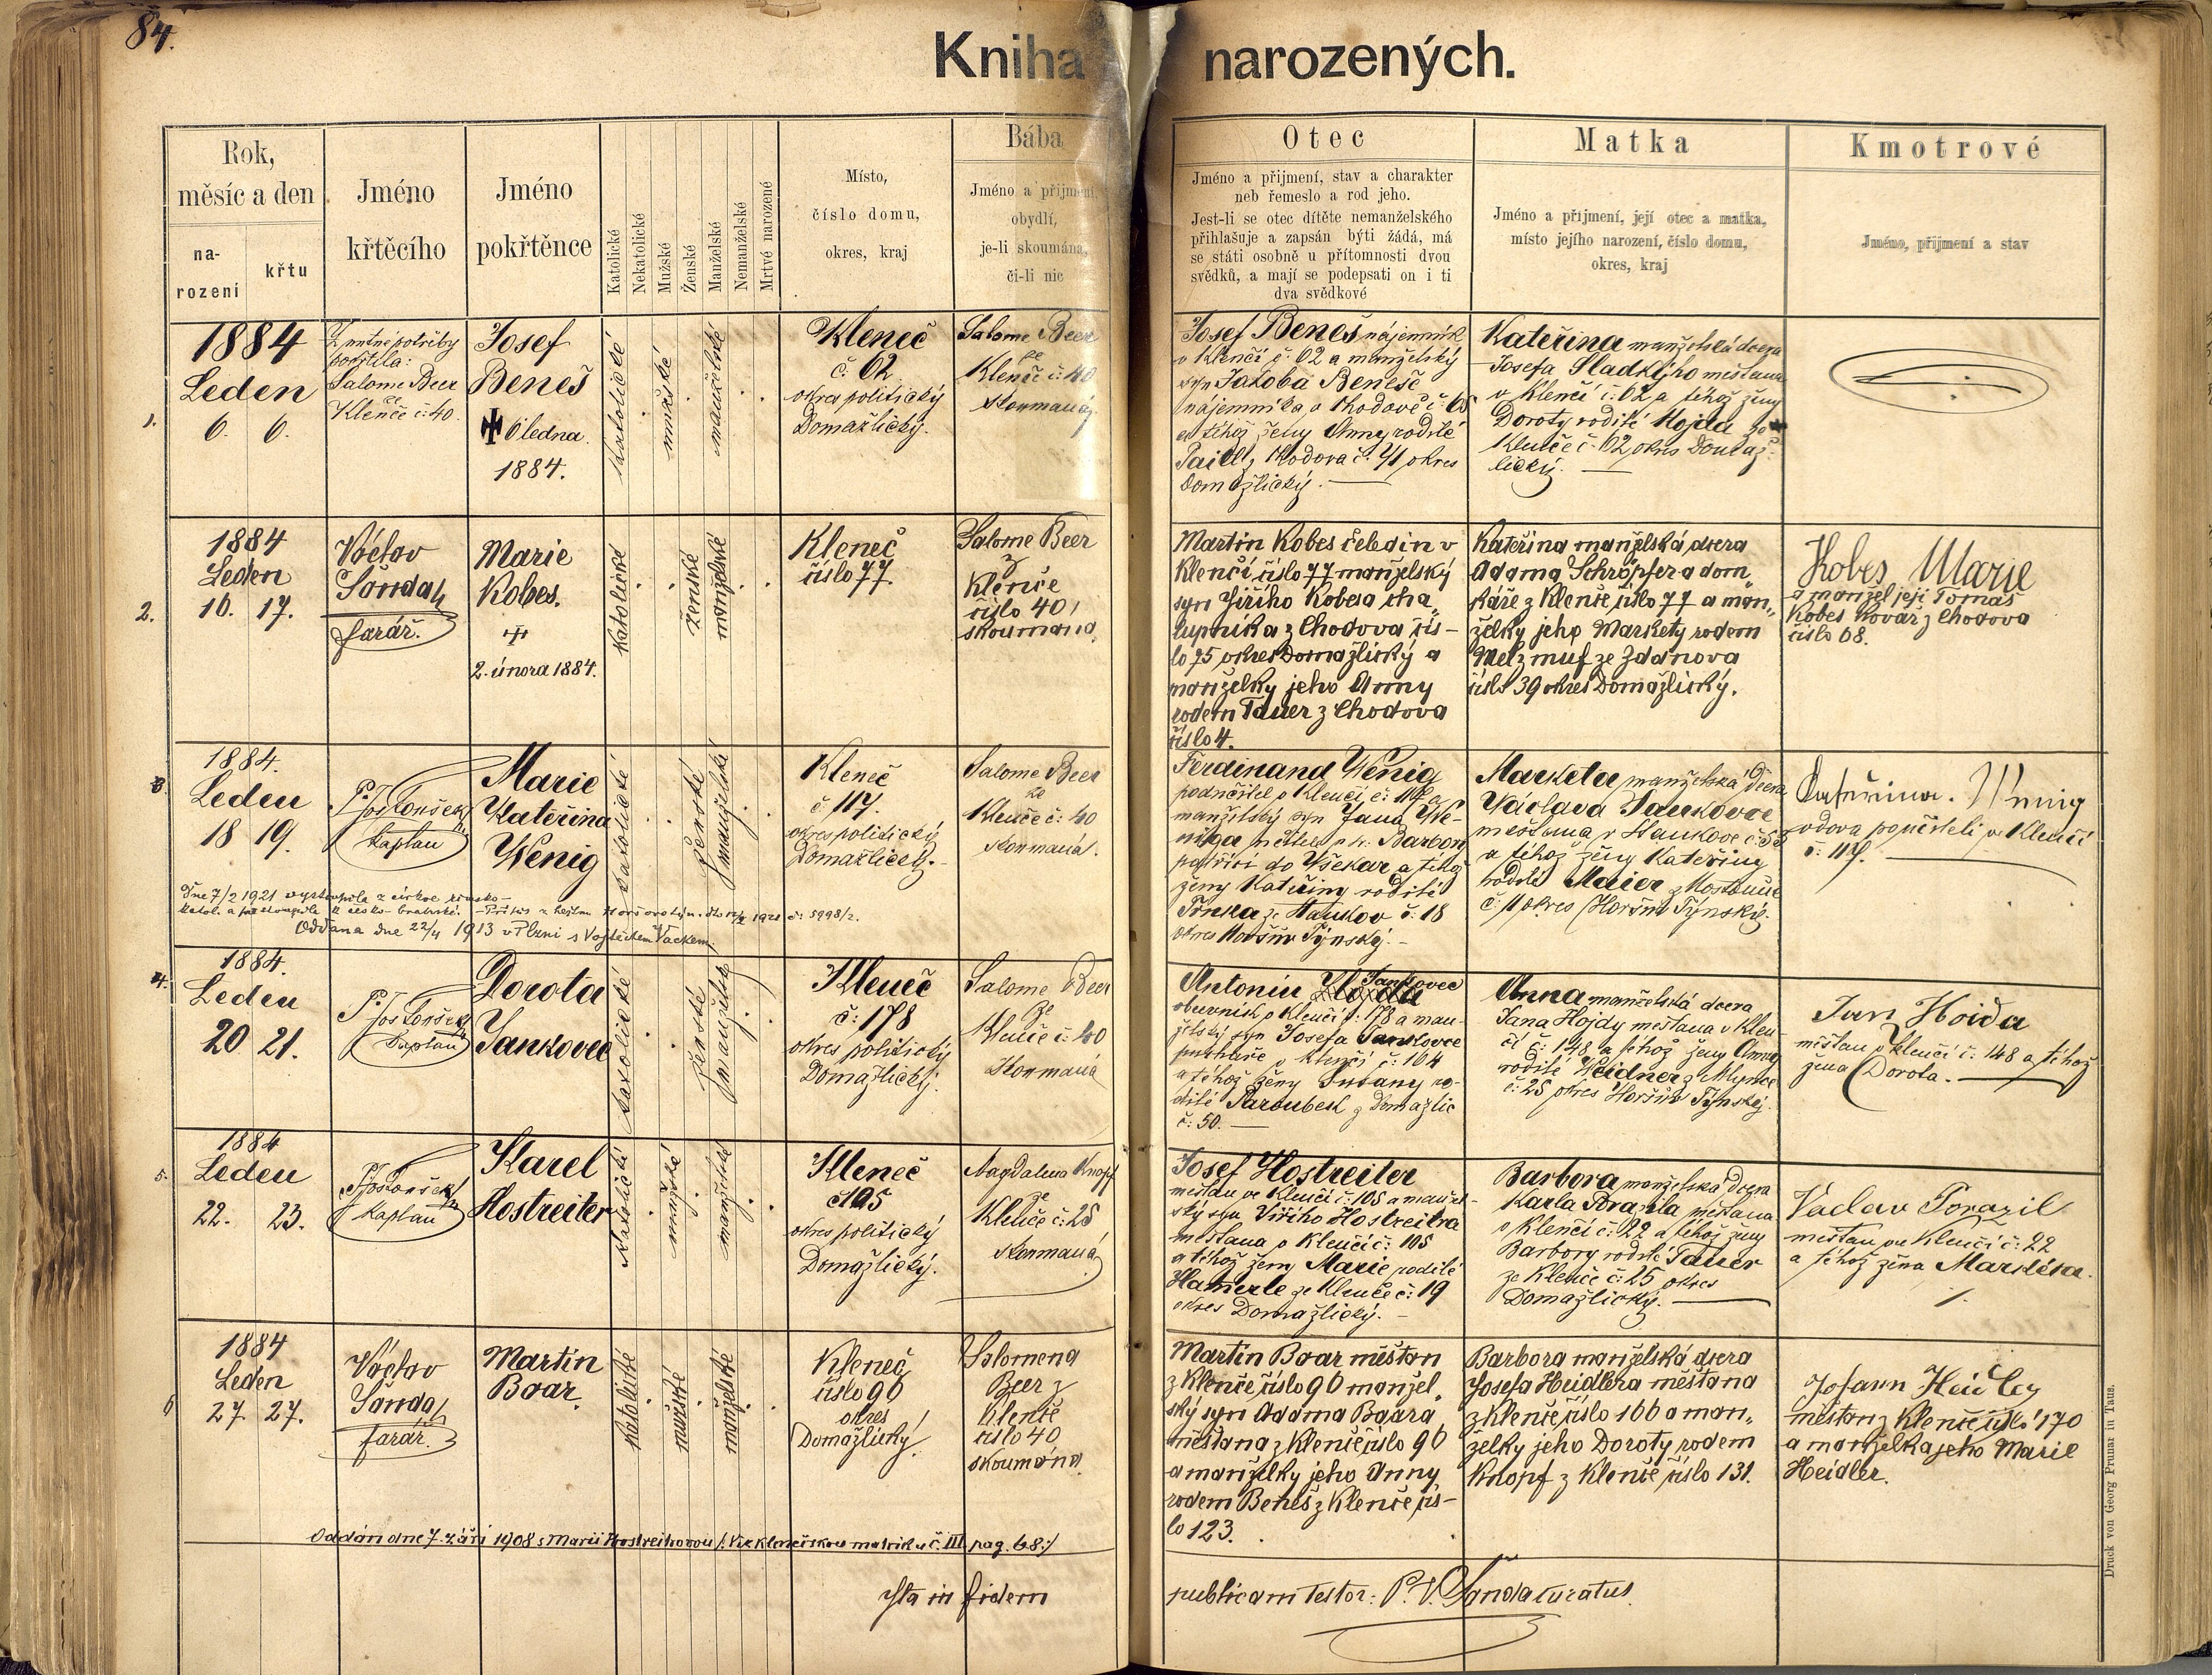 84.
Kniha narozených.
Rok,
měsíc a den
na-
rození
křtu
Jméno
křtěcího
Jméno
pokřtěnce
Katolické
Nekatolické
Mužské
Ženské
Manželské
Nemanželské
Mrtvé narozené
Místo,
číslo domu,
okres, kraj
Bába
Jméno a přijmení,
obydlí,
je-li skoumána,
či-li nic
Otec
Jméno a přijmení, stav a charakter
neb řemeslo a rod jeho.
Jest-li se otec dítěte nemanželského
přihlašuje a zapsán býti žádá, má
se státi osobně u přítomnosti dvou
svědků, a mají se podepsati on i ti
dva svědkové
Matka
Jméno a přijmení, její otec a matka,
místo jejího narození, číslo domu,
okres, kraj
Kmotrové
Jméno, přijmení a stav
1.
1884
Leden
6. 6.
Z nutné potřeby
pokřtila:
Salome Beer
ze
Klenče č: 40.
Josef
Beneš
6 ledna
1884.
katolické
mužské
manželské
Kleneč
č. 62
okres politický
Domažlický.
Salome Beer
ze
Klenče č: 40
skoumaná
Josef Beneš nájemník
v Klenčí č: 62 a manželský
syn Jakoba Beneše
nájemníka v Chodově č: 65
a téhož ženy Anny rodilé
Chodova č. 41 okres
Domažlický.
Kateřina manželská dcera
Josefa Sladkýho měšťana
v Klenčí č: 62 a téhož ženy
Doroty rodilé Hojda ze
Klenče č: 62 okres Domaž-
lický.
2.
1884
Leden
16. 17.
Václav
Šanda
farář.
Marie
Kobes.
2. února 1884.
katolické
ženské
manželské
Kleneč
číslo 77.
Salome Beer
z
Klenče
číslo 40,
skoumaná.
Martin Kobes čeledín v
Klenčí číslo 77 manželský
syn Jiřího Kobesa cha„
lupníka z Chodova čís-
lo 75 okres Domažlický a
manželky jeho Anny
rodem Tauer z Chodova
číslo 4.
Kateřina manželská dcera
Adama Schröpfera dom„
káře z Klenče číslo 77 a man„
želky jeho Markety rodem
Melzmuf ze Ždánova
číslo 39 okres Domažlický.
Kobes Marie
a manžel její Tomáš
Kobes kovář z Chodova
číslo 68.
3.
1884.
Leden
18 19.
P. Jos Tonšek
kaplan
Marie
Kateřina
Wenig
katolické
ženské
manželské
Kleneč
č 117.
okres politický
Domažlický.
Salome Beer
ze
Klenče č: 40
skoumaná.
Dne 7/2 1921 vystoupila z církve římsko-
katol. a přestoupila k česko-bratrské.
Oddána dne 22/4 1913 v Plzni s Vojtěchem Vackem.
Ferdinand Wenig
podučitel v Klenčí č: 117 a
manželský syn Jana We-
niga
patřící do Všekar a téhož
ženy Kateřiny rodilé
ze Haukov č: 18
okres Horšův Týnský.
Marketa manželská dcera
Václava Jankovce
měšťana v Haukově č: 53
a téhož ženy Kateřiny
rodilé Maier z Mostonic
č: 11 okres Horšův Týnský.
Kateřina. Wenig
vdova po učiteli ve Klenčí
č: 117.
4.
1884.
Leden
20 21.
P. Jos Tonšek
kaplan
Dorota
Jankovec
katolické
ženské
manželské
Kleneč
č: 178
okres politický
Domažlický.
Salome Beer
ze
Klenče č: 40
skoumaná
Antonín Jankovec
obuvník v Klenčí č: 178 a man-
želský syn Josefa Jankovce
v Klenčí č: 164
a téhož ženy Susany ro-
dilé Paroubek z Domažlic
č: 50.
Anna manželská dcera
Jana Hojdy měšťana v Klen-
čí č: 148 a téhož ženy Anny
rodilé Weidner z Mlýnce
č: 25 okres Horšův Týnský.
Jan Hoida
měšťan v Klenčí č: 148 a téhož
žena Dorota.
5.
1884
Leden
22. 23.
P. Jos Tonšek
kaplan
Karel
Hostreiter
katolické
mužské
manželské
Kleneč
č 105
okres politický
Domažlický.
Magdalena Knopf
ze
Klenče č: 25
skoumaná
Josef Hostreiter
měšťan ve Klenčí č: 105 a manžel-
ský syn Jiřího Hostreitra
měšťana v Klenčí č: 105
a téhož ženy Marie rodilé
Hamerle ze Klenče č: 19
okres Domažlický.
Barbora manželská dcera
Karla Porazila měšťana
v Klenčí č: 22 a téhož ženy
Barbory rodilé Tauer
ze Klenče č: 25 okres
Domažlický.
Václav Porazil
měšťan ve Klenčí č: 22
a téhož žena Marketa.
6
1884
Leden
27. 27.
Václav
Šanda
farář.
Martin
Boar.
katolické
mužské
manželské
Kleneč
číslo 96
okres
Domažlický.
Salomena
Beer z
Klenče
číslo 40
skoumána.
Martin Boar měšťan
z Klenče číslo 96 manžel„
ský syn Adama Baara
měšťana z Klenče číslo 96
a manželky jeho Anny
rodem Beneš z Klenče čís-
lo 123.
Barbora manželská dcera
Josefa Heidlera měšťana
z Klenče číslo 166 a man„
želky jeho Doroty rodem
Knopf z Klenče číslo 131.
Johann Heidler
měšťan z Klenče číslo 170
a manželka jeho Marie
Heidler.
Oddán dne 7. září 1908 s Marií Hostreitrovou /: Viz klenečskou matriku č. III pag. 68:/
Ita in fidem
publicam testor: P. V. Šanda curatus.
Druck von Georg Prunar in Taus.